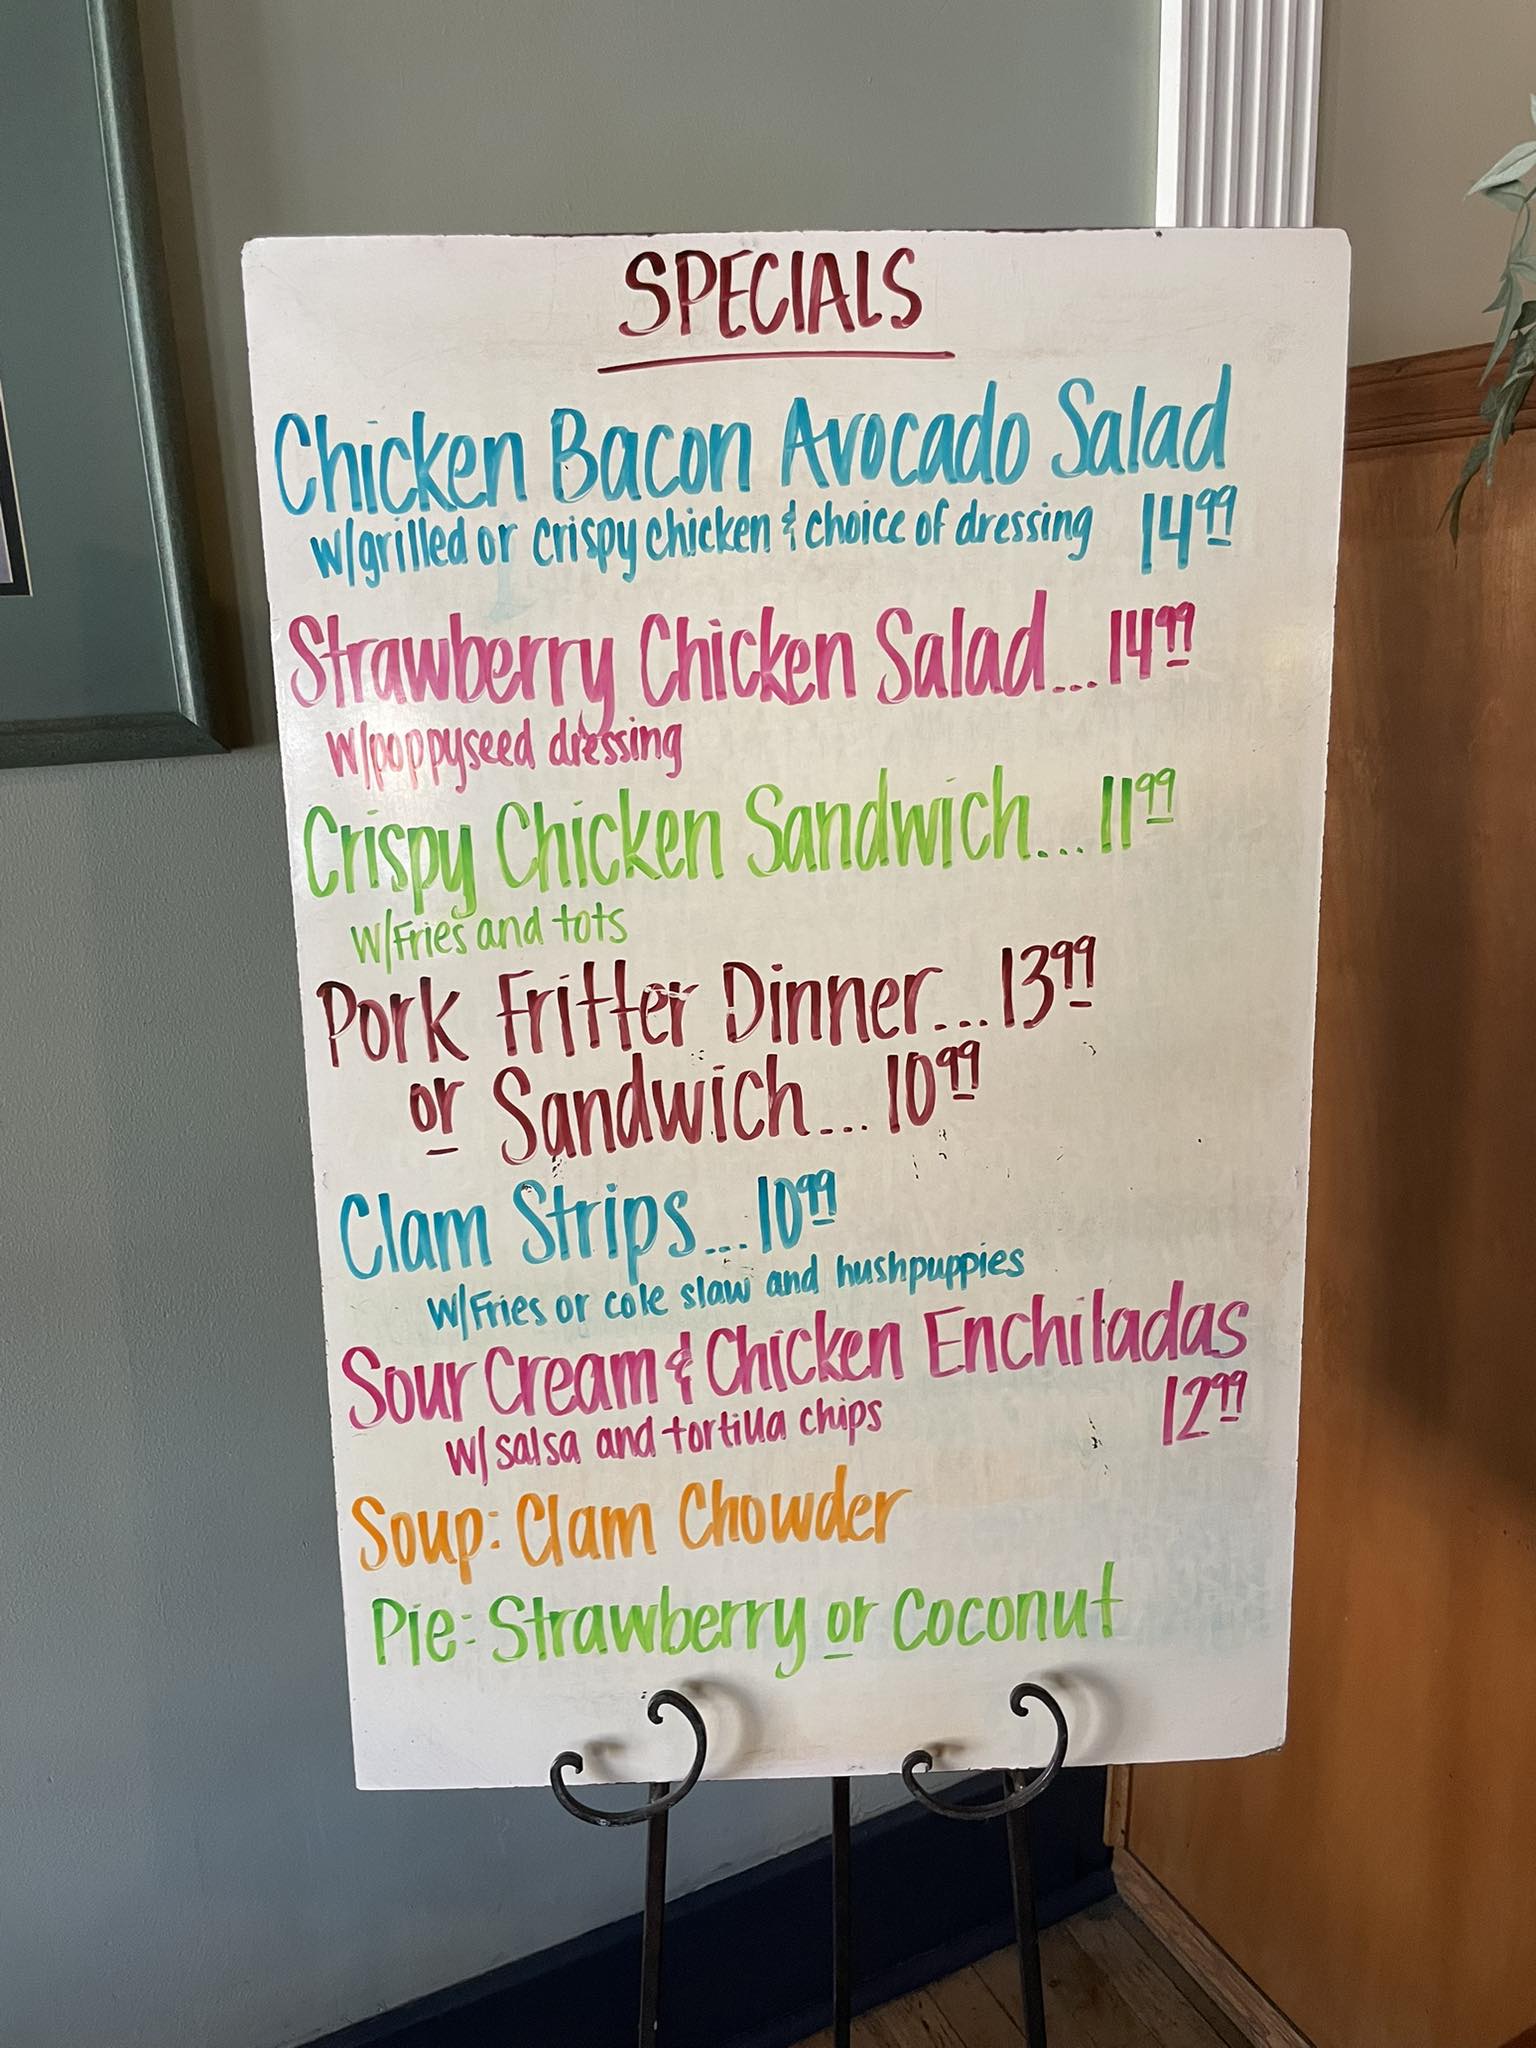 SPECIALS
Chicken Bacon Avocado Salad
w/grilled or crispy chicken & choice of dressing 14.99
Strawberry Chicken Salad...14.99
w/poppyseed dressing
Crispy Chicken Sandwich...11.99
w/Fries and tots
Pork Fritter Dinner...13.99
or Sandwich...10.99
Clam Strips...10.99
w/Fries or cole slaw and hushpuppies
Sour Cream & Chicken Enchiladas
w/salsa and tortilla chips 12.99
Soup: Clam Chowder
Pie: Strawberry or Coconut